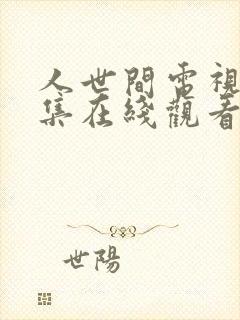 人世間電視
集在綫觀看
世陽